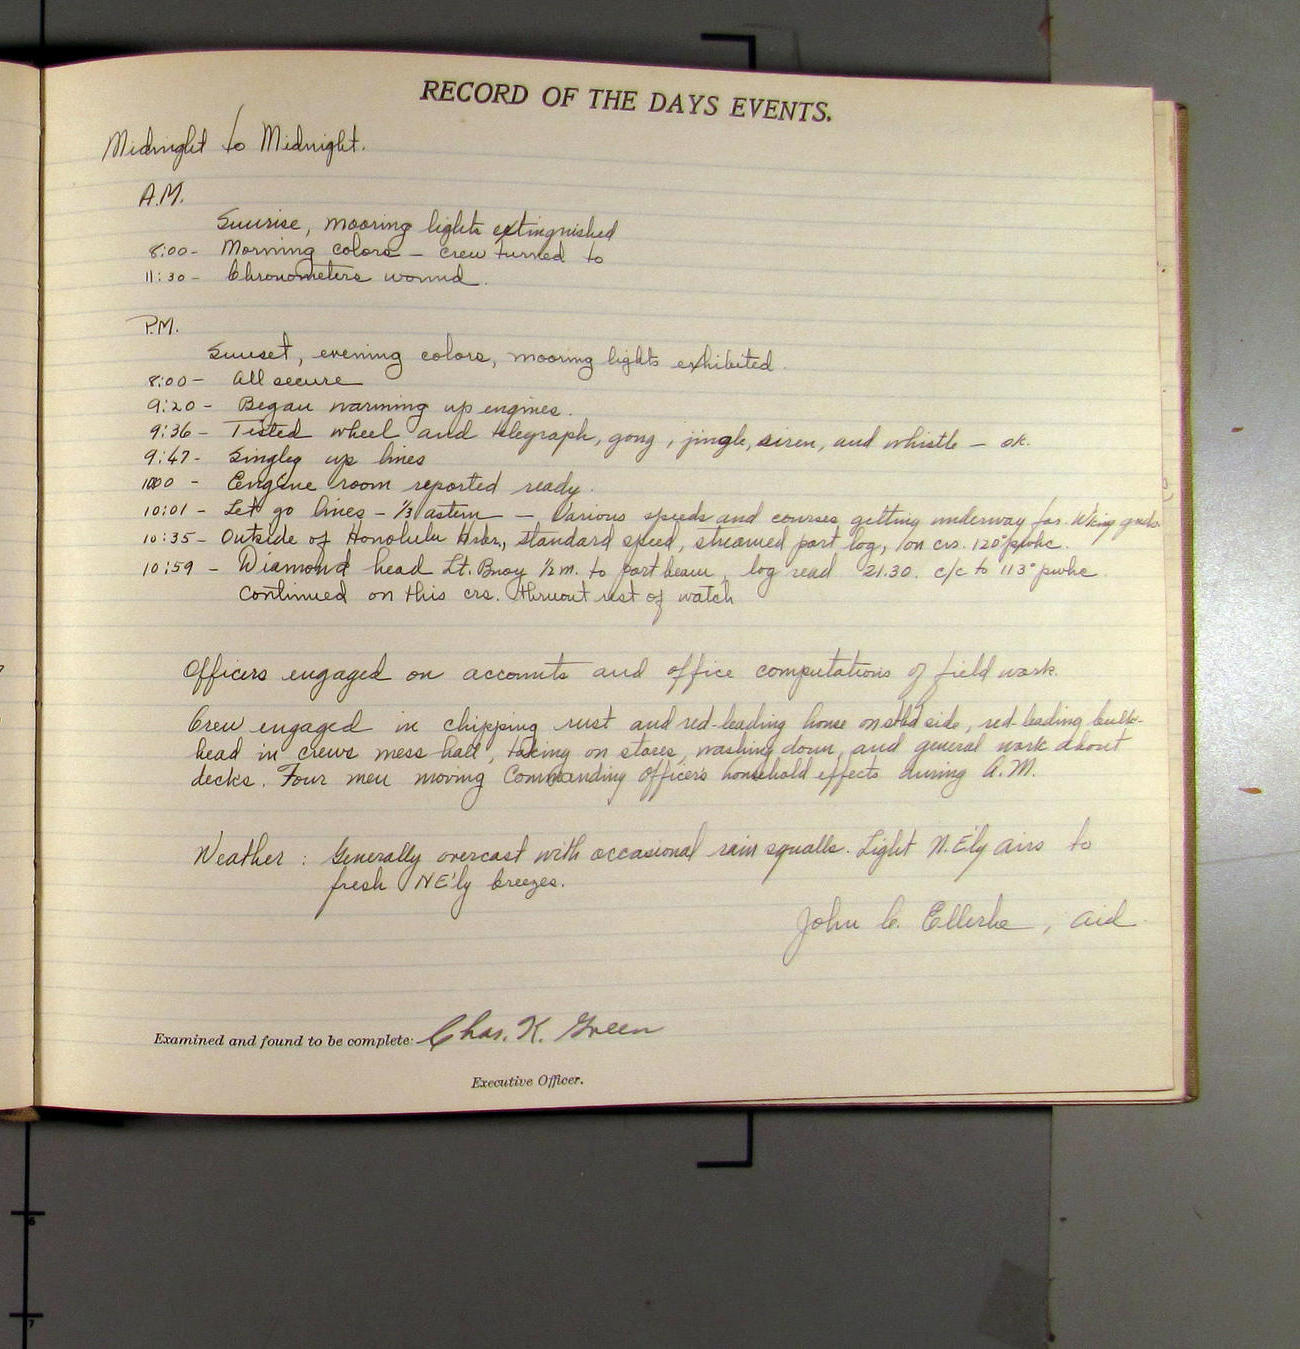 RECORD OF THE DAYS EVENTS.
Midnight to Midnight.
A.M.
Sunrise, mooring lights extinguished
8:00 - Morning colors - crew turned to
11:30 - Chronometers wound.
P.M.
Sunset, evening colors, mooring lights exhibited.
8:00 - All secure
9:20 - Began warming up engines.
9:36 - Tested wheel and telegraph, gong, jingle, siren, and whistle - ok.
9:47 - Singleg up lines
1000 - Engine room reported ready.
10:01 - Let go lines - 1/3 astern - Various speeds and courses getting underway for
10:35 - Outside of Honolulu Hrbr., standard speed, streamed port log, on crs. 120° pwhc.
10:59 - Diamond head Lt. Buoy 1/2 m. to port beam, log read 21.30. c/c to 113° pwhc
continued on this crs. thruout rest of watch
Officers engaged on accounts and office computations of field work.
Crew engaged in chipping rust and red-leading house on stbd side, red-leading bulk-
head in crews mess hall, taking on stores, washing down, and general work about
decks. Four men moving Commanding Officer's household effects during A.M.
Weather : Generally overcast with occasional rain squalls. Light N.E'ly airs to
fresh NE'ly breezes.
John C. Ellerbe, Aid
Examined and found to be complete: Chas. K. Green
Executive Officer.
6
7